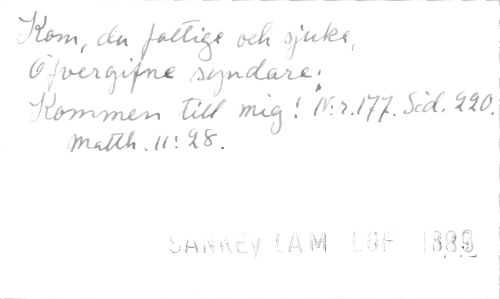 Kom, du fattige och sjuke,
Öfvergifne syndare;
Kommen till mig! N:r.177. Sid. 220.
Matth. 11: 28.
SANKEY LAM LOF 1889